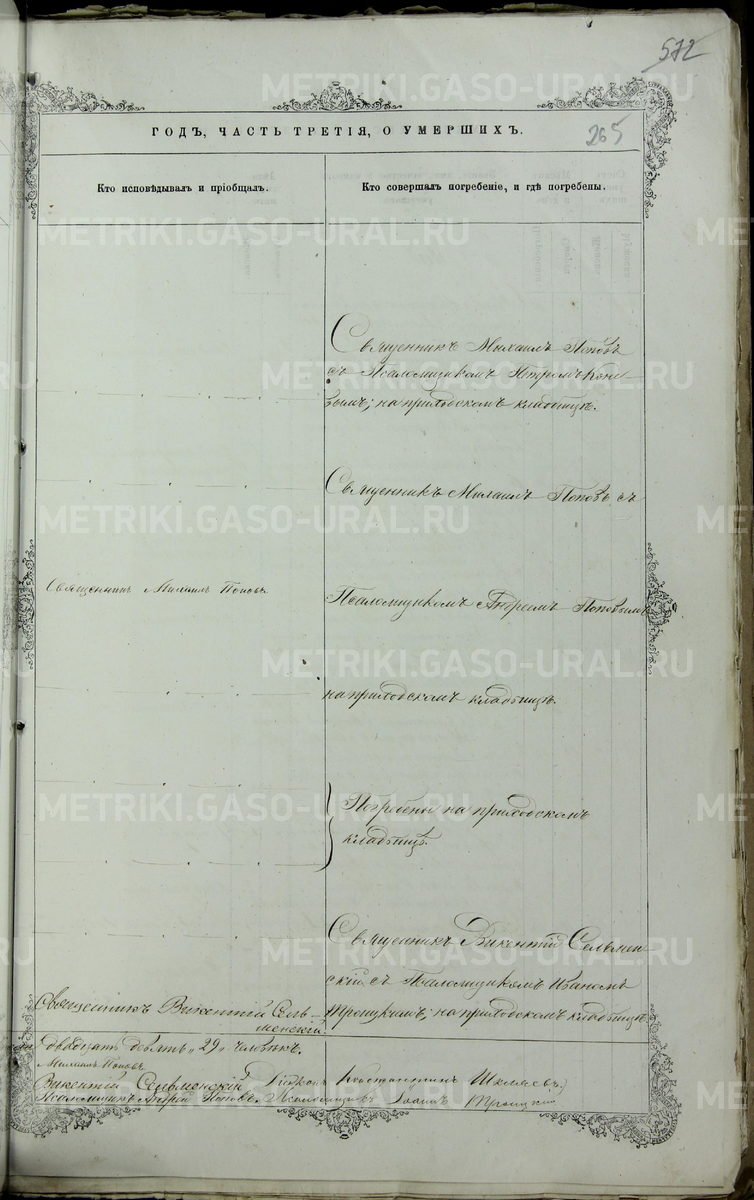 572
265
ГОДЪ, ЧАСТЬ ТРЕТІЯ, О УМЕРШИХЪ.
Кто исповѣдывалъ и пріобщалъ.
Кто совершалъ погребеніе, и гдѣ погребены.
Священникъ Михаилъ Поповъ
съ Псаломщикомъ Петромъ Коне
вымъ; на приходскомъ кладбищѣ.
Священникъ Михаилъ Поповъ съ
Священникъ Михаилъ Поповъ.
Псаломщикомъ Андреемъ Поповымъ
на приходскомъ кладбищѣ.
Погребены на приходскомъ
кладбищѣ.
Священникъ Викентій Сельмен
скій съ Псаломщикомъ Иваномъ
Троицкимъ; на приходскомъ кладбищѣ
Священникъ Викентій Сель-
менскій.
двадцать девять „29" человѣкъ.
Михаилъ Поповъ
Викентій Сельменскій Діаконъ Константинъ
Псаломщикъ Андрей Поповъ. Псаломщикъ Іоаннъ Троицкій
METRIKI.GASO-URAL.RU